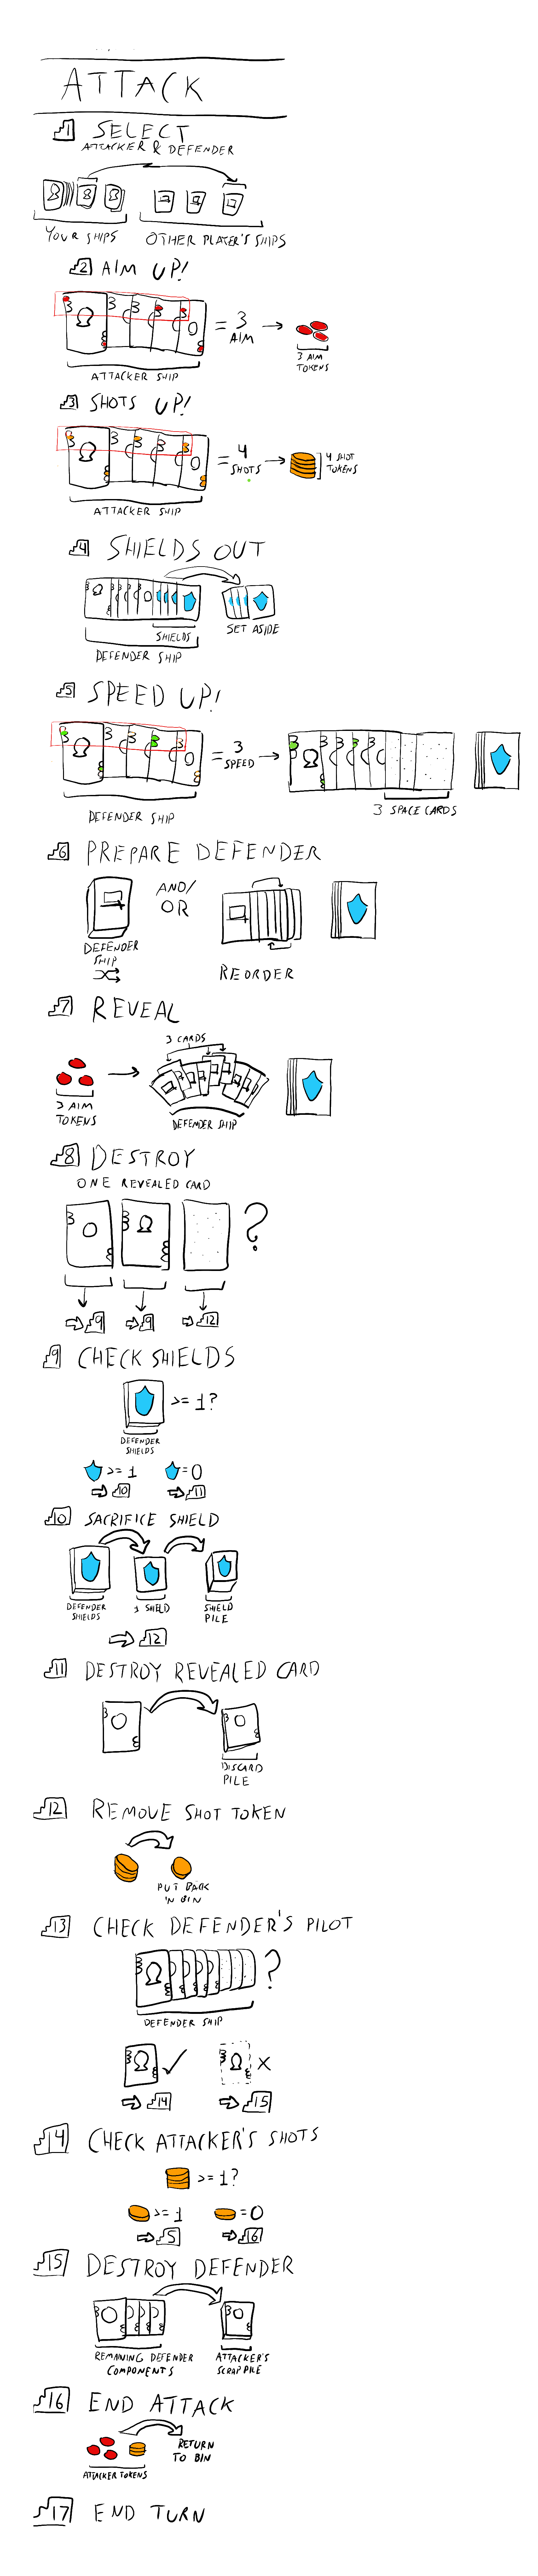 ATTACK
1 SELECT
ATTACKER & DEFENDER
YOUR SHIPS
OTHER PLAYER'S SHIPS
2 AIM UP!
= 3
AIM
3 AIM
TOKENS
ATTACKER SHIP
3 SHOTS UP!
= 4
SHOTS
4 SHOT
TOKENS
ATTACKER SHIP
4 SHIELDS OUT
SHIELDS
SET ASIDE
DEFENDER SHIP
5 SPEED UP!
= 3
SPEED
3 SPACE CARDS
DEFENDER SHIP
6 PREPARE DEFENDER
AND/
OR
DEFENDER
SHIP
REORDER
7 REVEAL
3 CARDS
3 AIM
TOKENS
DEFENDER SHIP
8 DESTROY
ONE REVEALED CARD
?
9
9
12
9 CHECK SHIELDS
>= 1?
DEFENDER
SHIELDS
>= 1
= 0
10
11
10 SACRIFICE SHIELD
DEFENDER
SHIELDS
1 SHIELD
SHIELD
PILE
12
11 DESTROY REVEALED CARD
DISCARD
PILE
12 REMOVE SHOT TOKEN
PUT BACK
IN BIN
13 CHECK DEFENDER'S PILOT
?
DEFENDER SHIP
14
15
14 CHECK ATTACKER'S SHOTS
>= 1?
>= 1
= 0
5
16
15 DESTROY DEFENDER
REMAINING DEFENDER
COMPONENTS
ATTACKER'S
SCRAP PILE
16 END ATTACK
RETURN
TO BIN
ATTACKER TOKENS
17 END TURN